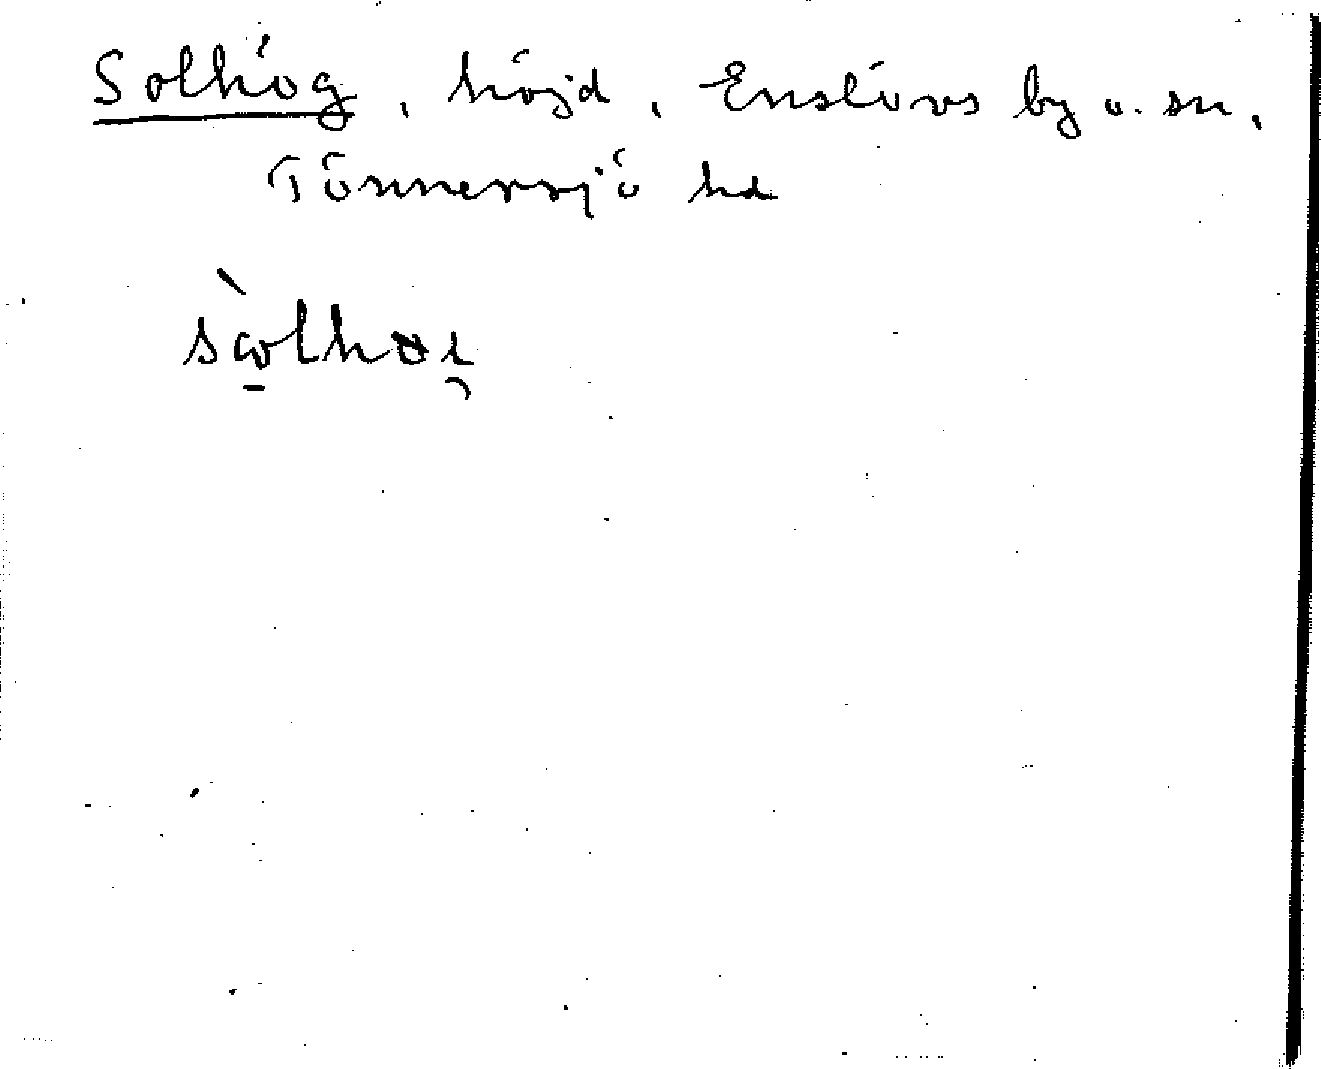 Solhög, höjd, Enslövs by o. sn,
Tönnersjö hd
sòlhøi̯